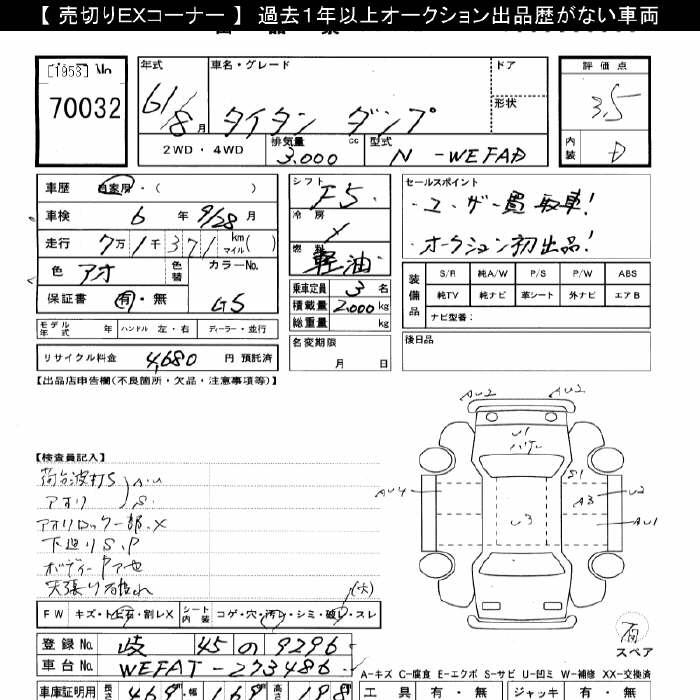 【 売切りEXコーナー 】 過去１年以上オークション出品歴がない車両
[1953] No
70032
年式
61/8 月
車名・グレード
タイタン ダンプ
ドア
形状
評価点
3.5
内装
D
2WD・4WD
排気量
3.000 cc
型式
N -WEFAD
車歴
自家用・( )
車検
6 年 9/28 月
走行
7万1千371 km マイル( )
色
アオ
色替
カラーNo.
G5
保証書
有・無
シフト
F5
冷房
燃料
軽油
乗車定員 3 名
積載量 2,000 kg
総重量 kg
名変期限
月 日
セールスポイント
・ユーザー買取車!
・オークション初出品!
装備品
S/R 純A/W P/S P/W ABS
純TV 純ナビ 革シート 外ナビ エアB
ナビ型番：
後日品
モデル年式 年 ハンドル 左・右 ディーラー・並行
リサイクル料金 4,680 円 預託済
【出品店申告欄(不良箇所・欠品・注意事項等)】
【検査員記入】
荷台波打S
アオリ
A.U
S.
アオリロック一部.X
下廻りS.P
ボディーPア也
天張り
(大)
AU2 AU2
U1
S1
AU4
A3
U2
U3
AU1
スペア
FW キズ・ト石・割レX シート内装 コゲ・穴・汚レ・シミ・破レ・スレ
登録No. 岐 45 の 9296
車台No. WEFAT-273486
A-キズ C-腐食 E-エクボ S-サビ U-凹ミ W-補修 XX-交換済
車庫証明用 長さ 469 幅 169 高さ 198
工具 有・無 ジャッキ 有・無